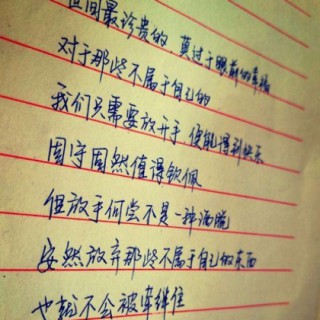 世间最珍贵的 莫过于眼前的幸福
对于那些不属于自己的
我们只需要放开手 便能得到快乐
固守固然值得钦佩
但放手何尝不是一种洒脱
安然放弃那些不属于自己的东西
也就不会被牵绊住